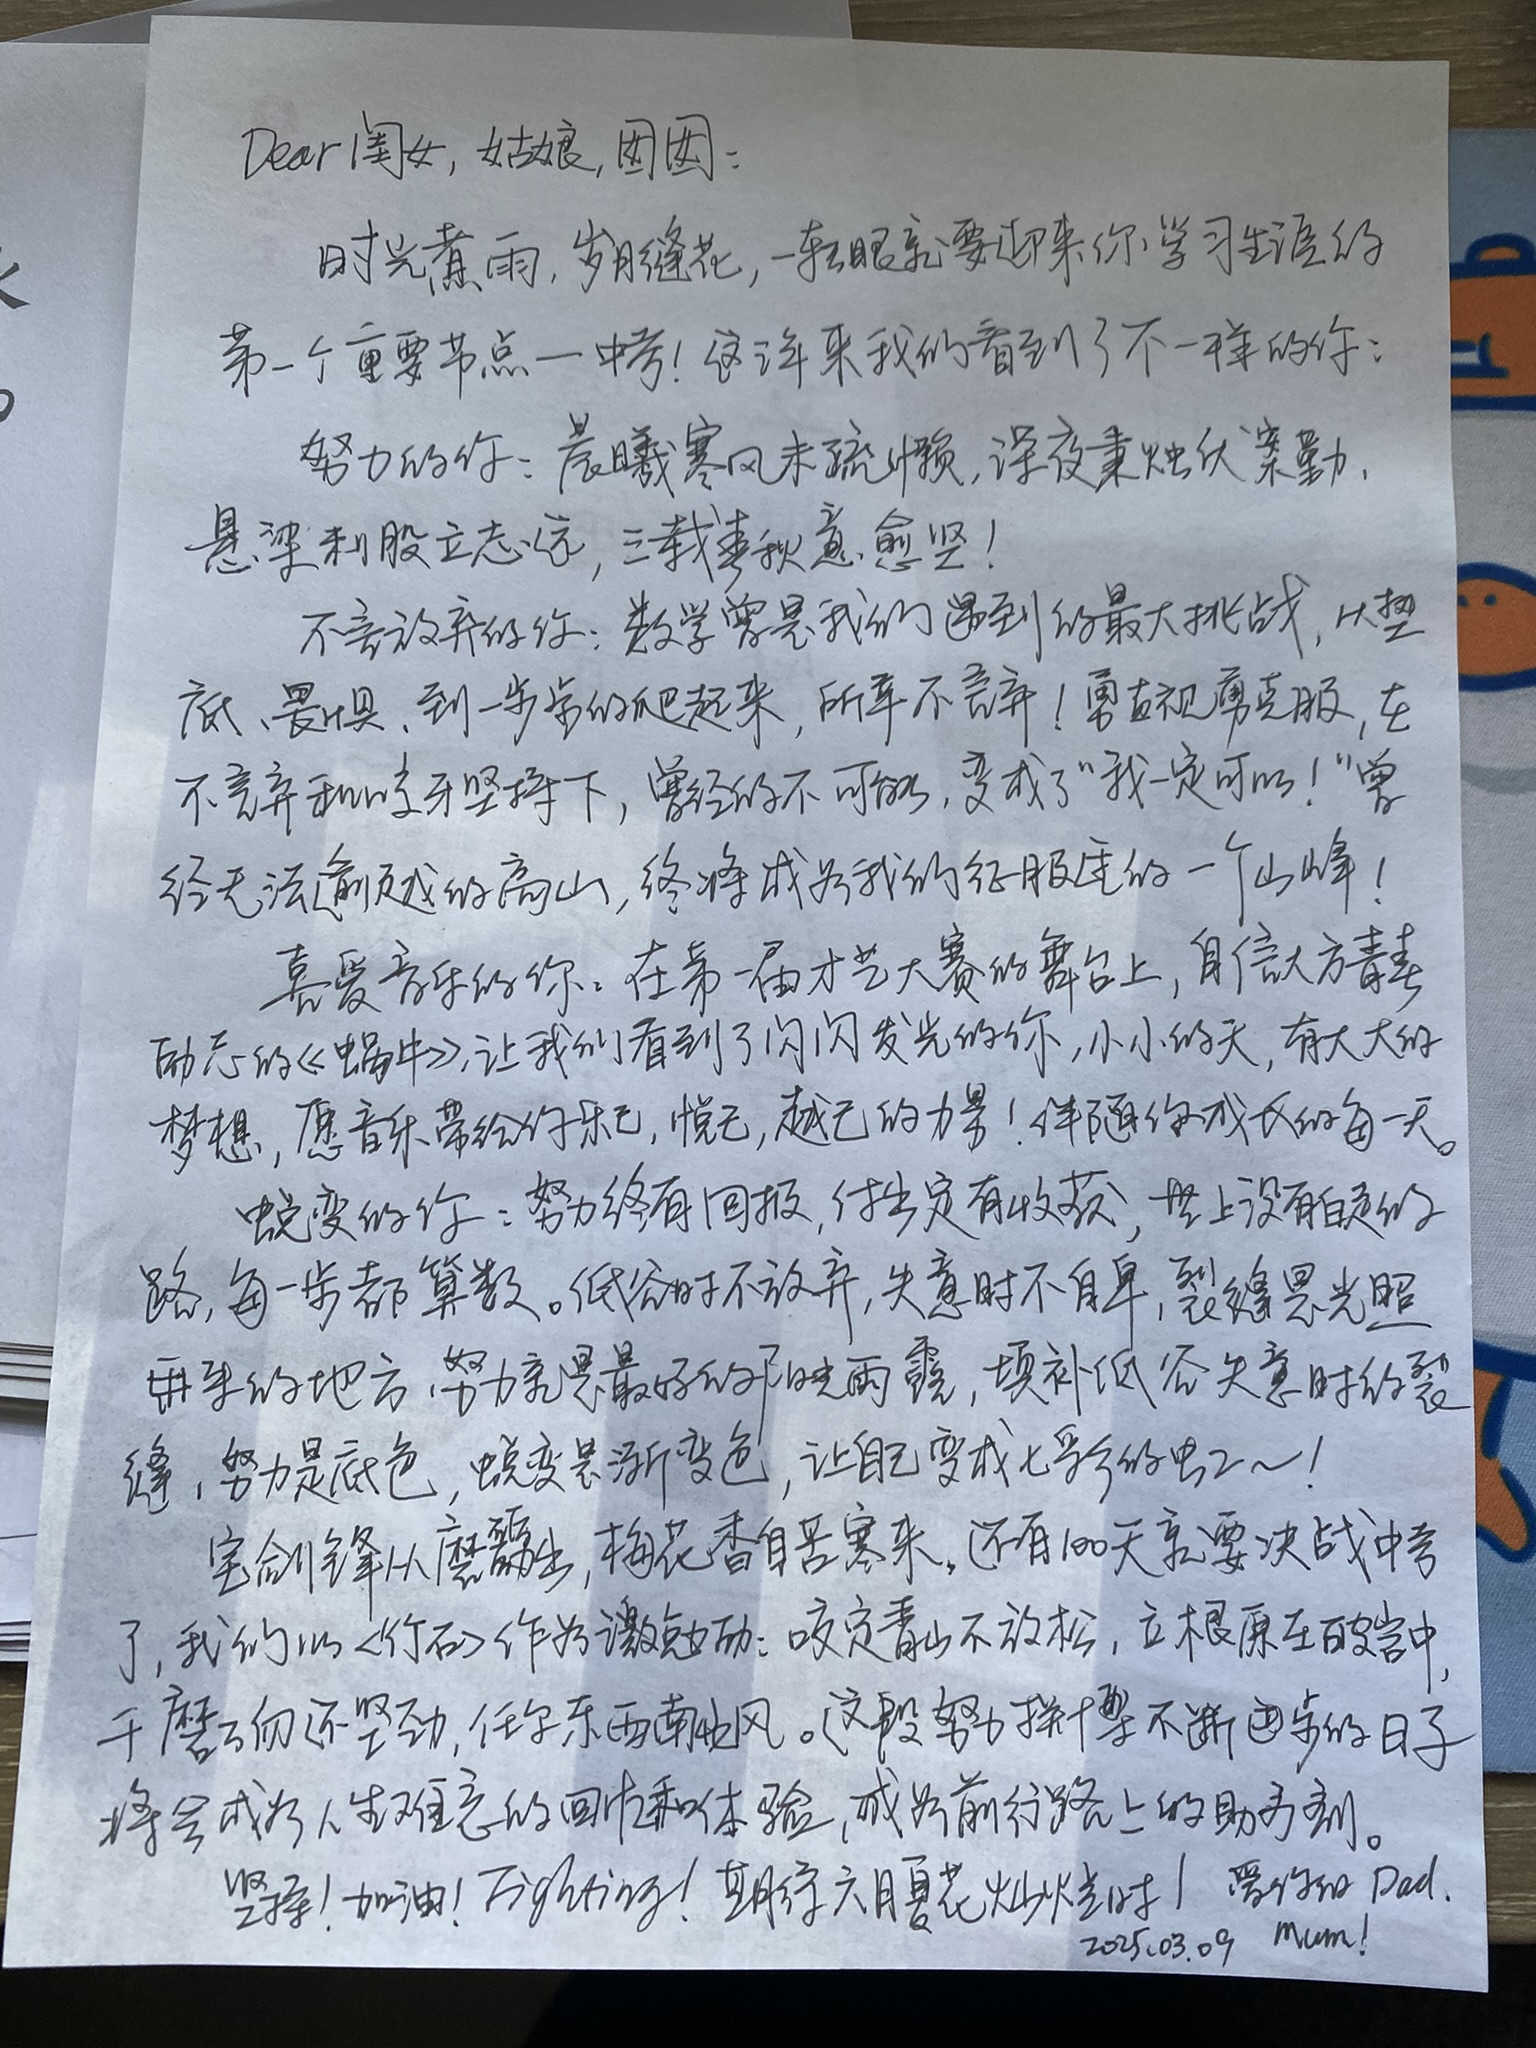 Dear闺女,姑娘,囡囡:
时光煮雨,岁月缝花,一转眼就要迎来你学习生涯的
第一个重要节点一中考!这三年来我们看到了不一样的你:
努力的你:晨曦寒风未疏懒,深夜秉烛伏案勤、
悬梁刺股立志远,三载春秋意愈坚!
不言放弃的你:数学曾是我们遇到的最大挑战,从垫
底、畏惧、到一步步的爬起来,所幸不言弃!勇直视勇克服,在
不言弃和咬牙坚持下,曾经的不可能,变成了"我一定可以!"曾
经无法逾越的高山,终将成为我们征服过的一个山峰!
喜爱音乐的你:在第一届才艺大赛的舞台上,自信大方青春
励志的《蜗牛》,让我们看到了闪闪发光的你,小小的天,有大大的
梦想,愿音乐带给你乐己,悦己,越己的力量!伴随你成长的每一天。
蜕变的你:努力终有回报,付出定有收获,世上没有白走的
路,每一步都算数。低谷时不放弃,失意时不自卑,裂缝是光照
进来的地方,努力就是最好的阳光雨露,填补低谷失意时的裂
缝,努力是底色,蜕变是渐变色,让自己变成七彩的虹~!
宝剑锋从磨砺出,梅花香自苦寒来。还有100天就要决战中考
了,我们以<竹石>作为激勉励:咬定青山不放松,立根原在破岩中,
千磨万仞还坚劲,任尔东西南北风。这段努力拼搏不断进步的日子
将会成为人生难忘的回忆和体验,成为前行路上的助力剂。
坚持!加油!Fighting!期待六月夏花灿烂时! 爱你的Dad.
2025.03.09 Mum!